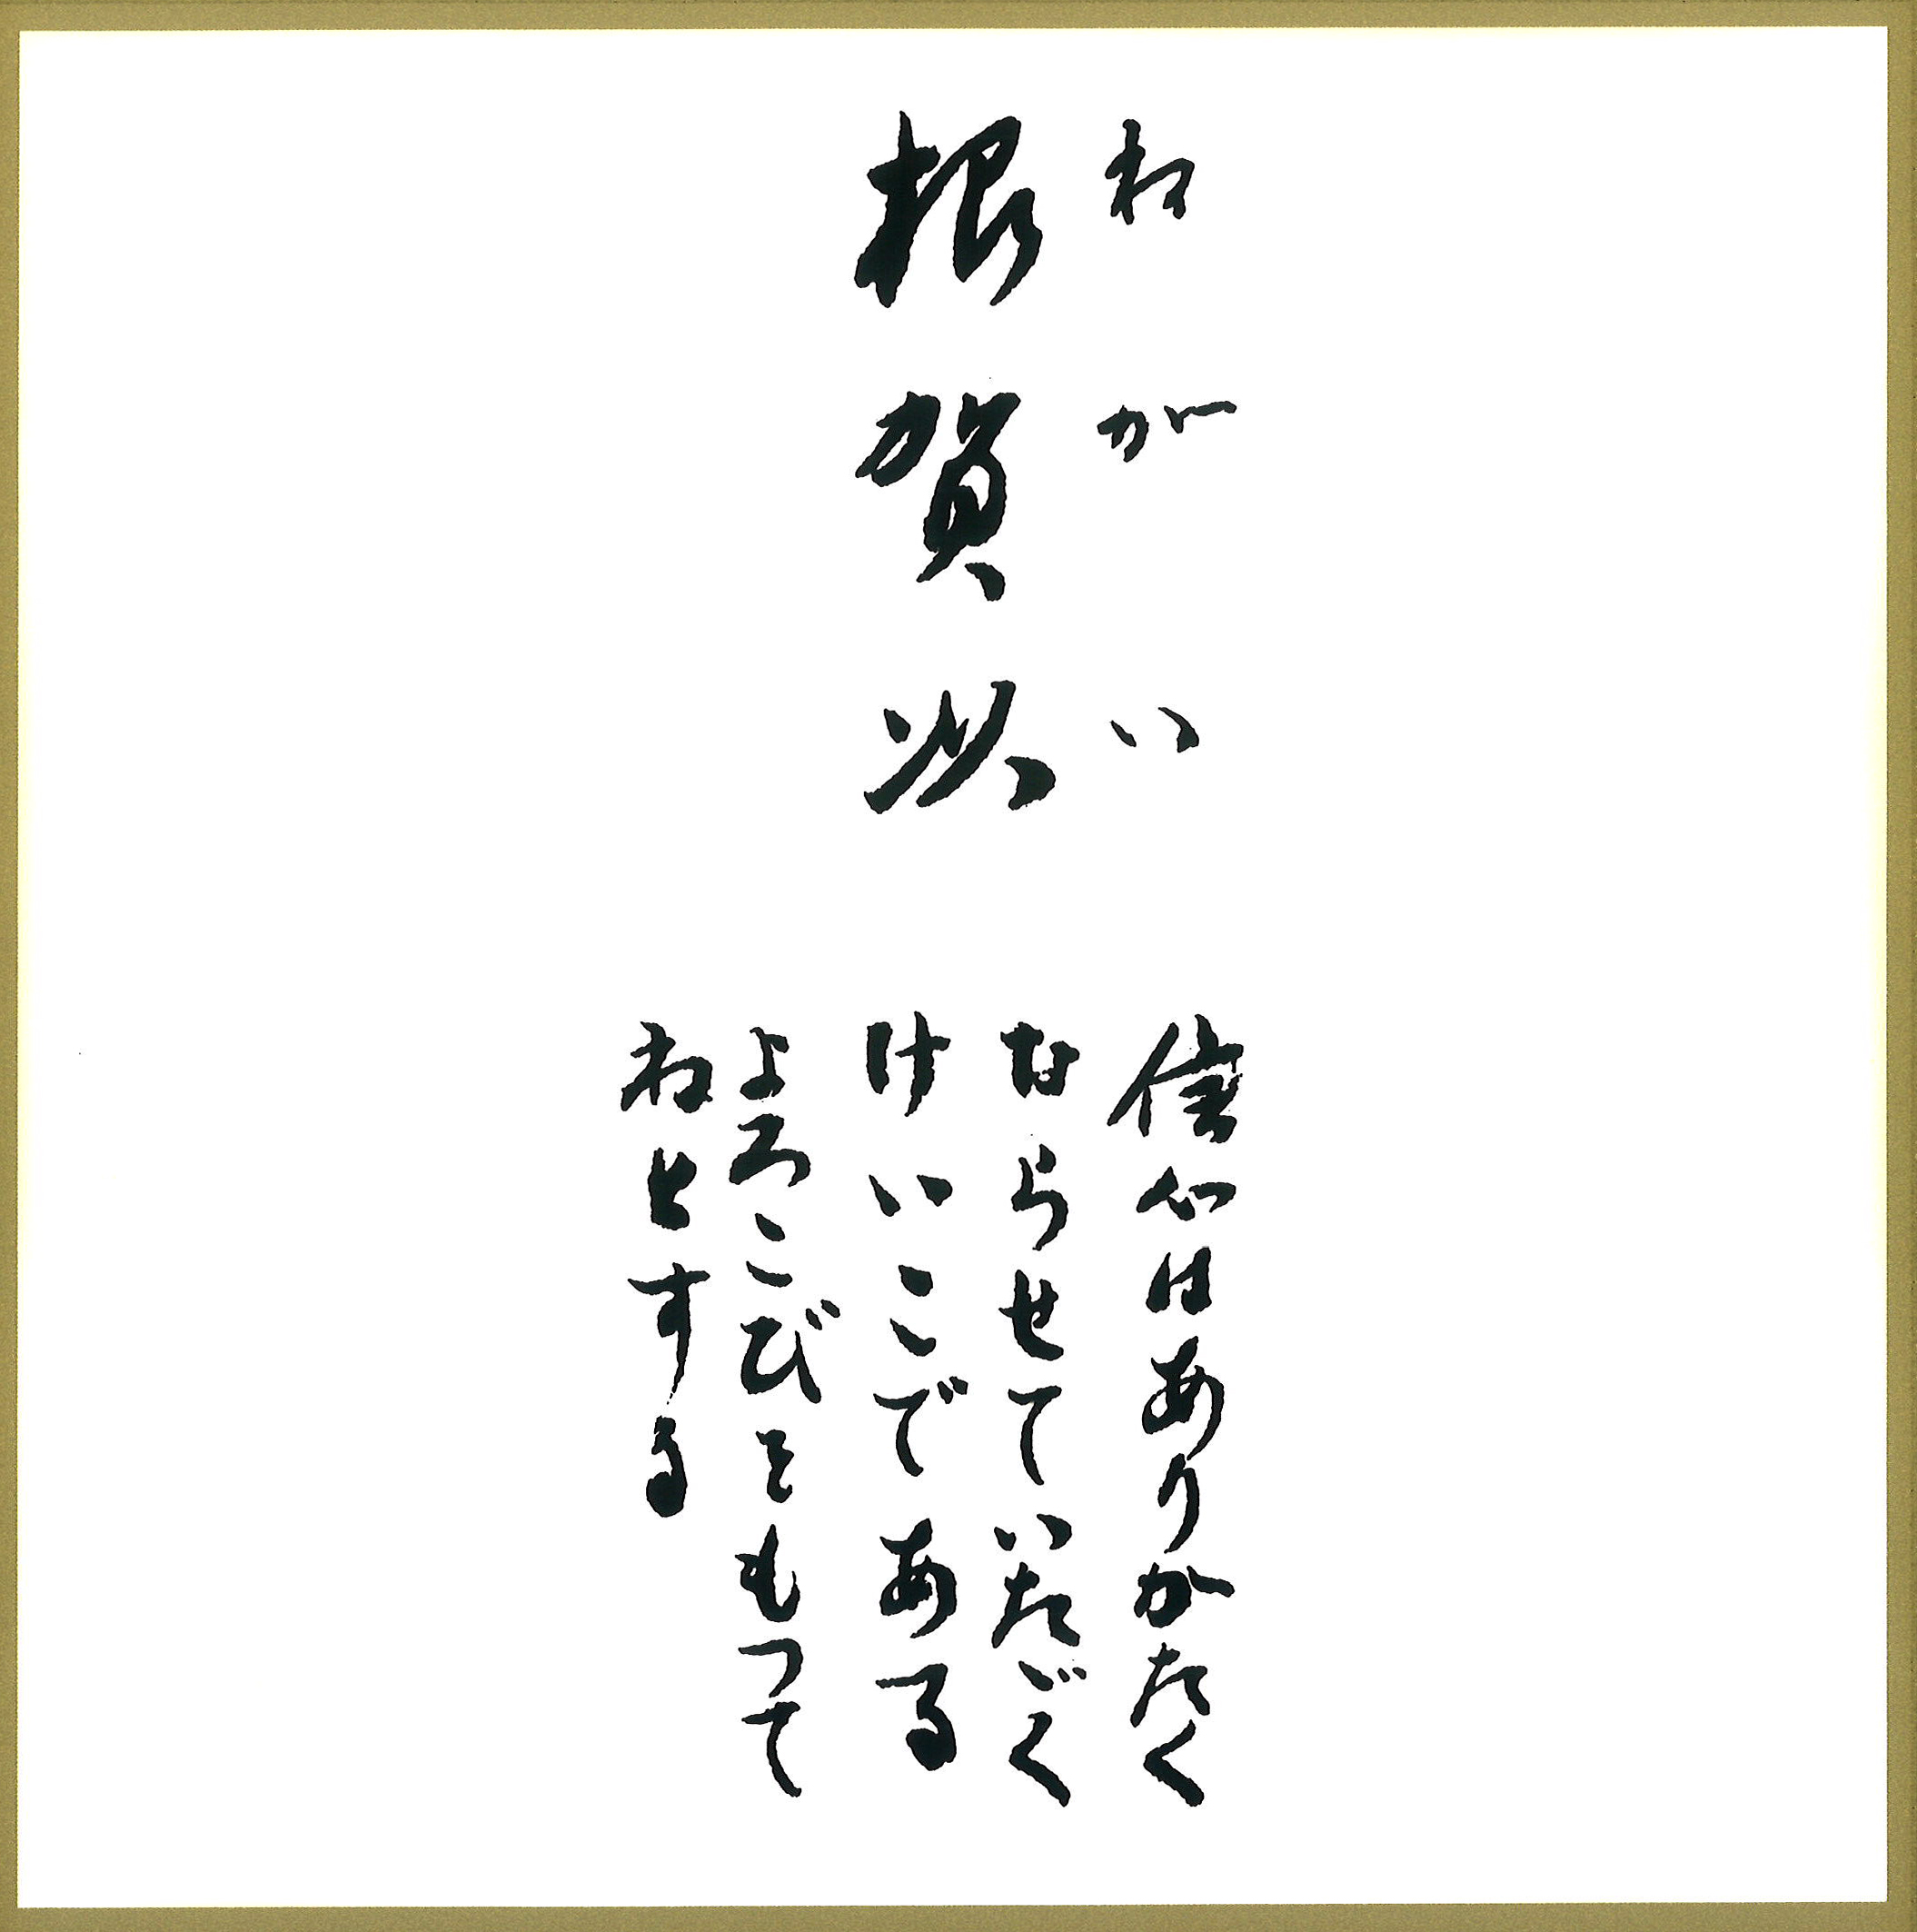 ねがい
根賀以
信心はありかたく
むらせていただく
けいこである
よろこびをもって
ねとする